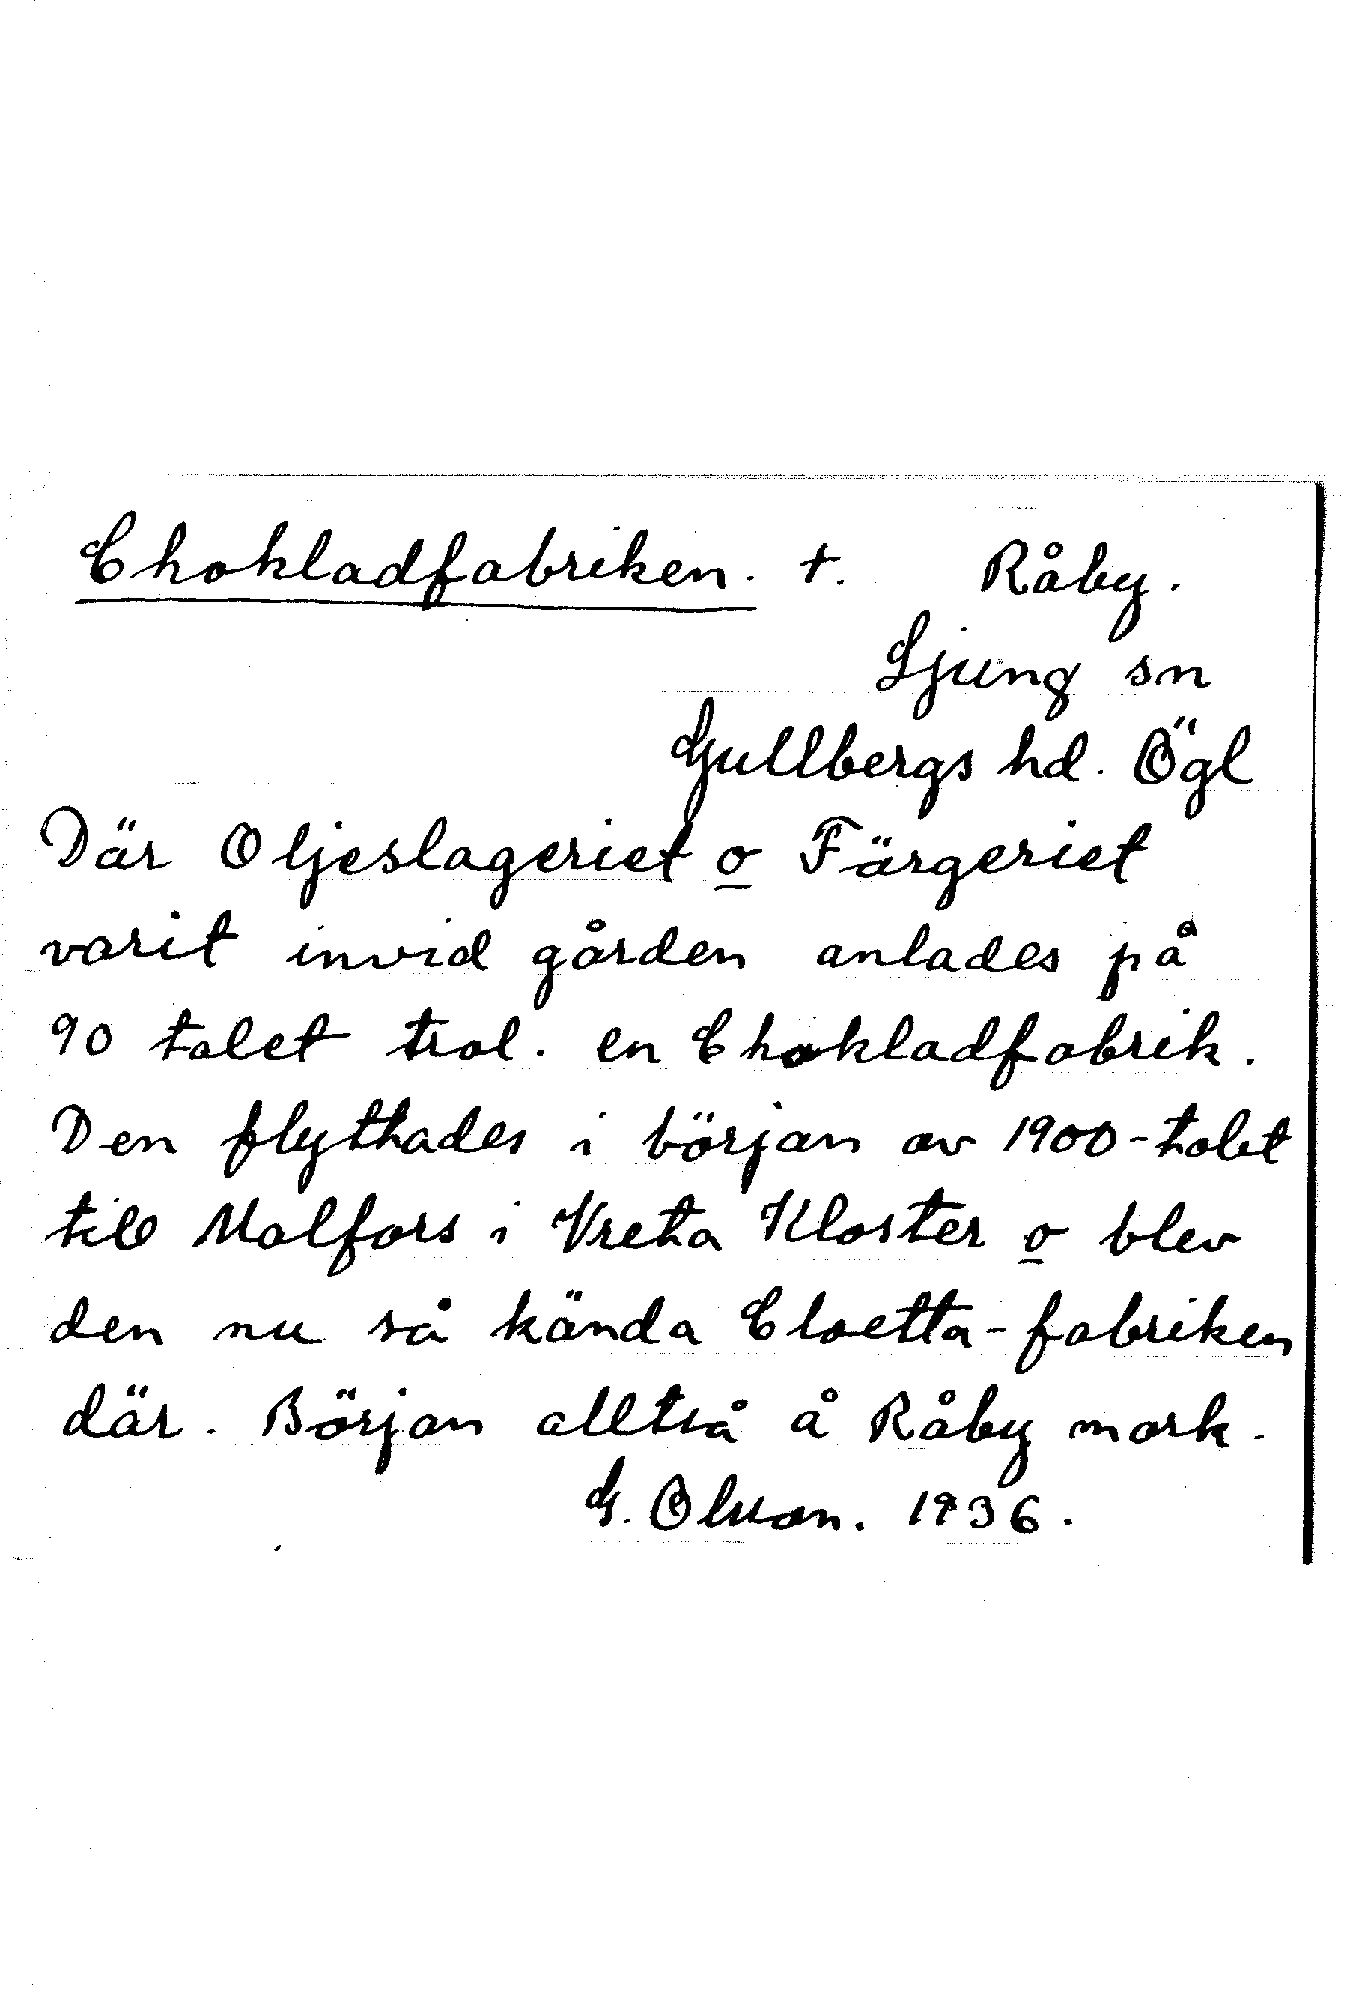 Chokladfabriken. †. Råby.
Ljung sn
Gullbergs hd. Ögl
Där Oljeslageriet o Färgeriet
varit invid gården anlades på
90 talet trol. en Chokladfabrik.
Den flyttades i början av 1900-talet
till Malfors i Vreta Kloster o blev
den nu så kända Cloetta-fabriken
där. Början alltså å Råby mark.
G. Olsson. 1936.